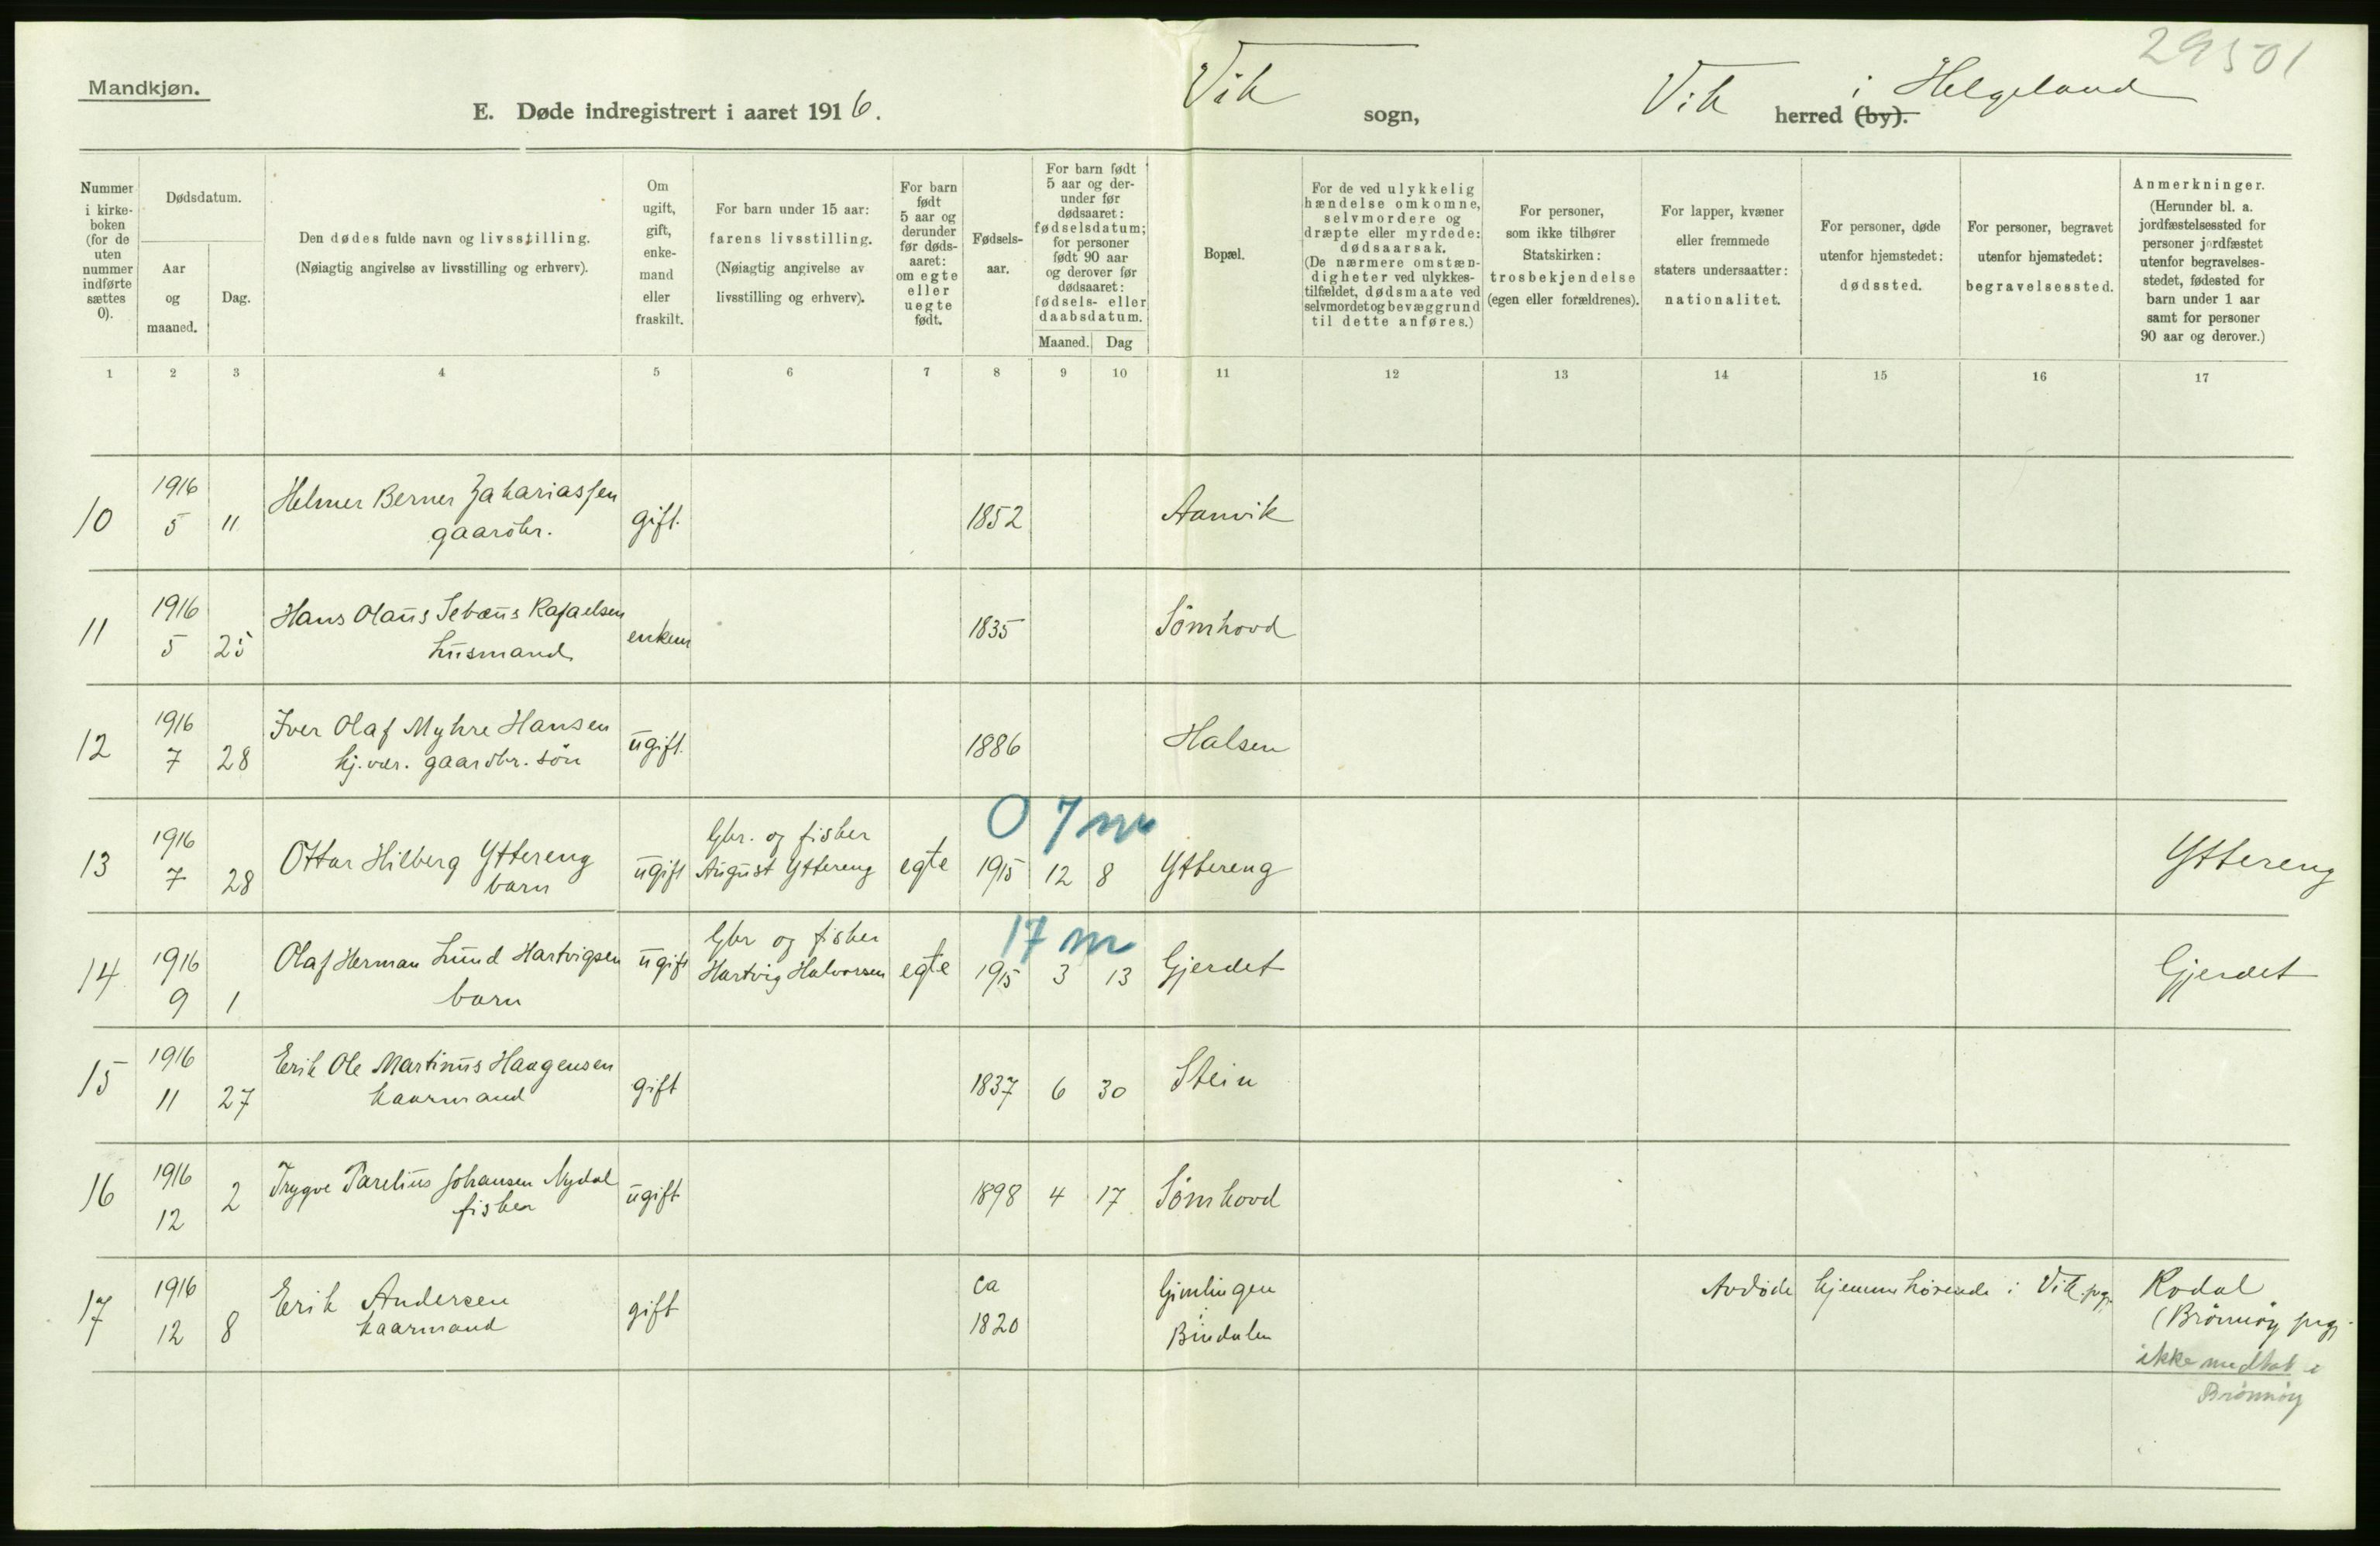 29501
Mandkjøn.
E. Døde indregistrert i aaret 1916.
Vik sogn,
Vik i Helgeland
herred (by).
Nummer i kirkeboken (for de uten nummer indførte sættes 0).
Dødsdatum.
Aar og maaned.
Dag.
Den dødes fulde navn og livsstilling.
(Nøiagtig angivelse av livsstilling og erhverv).
Om ugift, gift, enkemand eller fraskilt.
For barn under 15 aar: farens livsstilling. (Nøiagtig angivelse av livsstilling og erhverv).
For barn født 5 aar og derunder før dødsaaret: om egte eller uegte født.
Fødselsaar.
For barn født 5 aar og derunder før dødsaaret: fødselsdatum; for personer født 90 aar og derover før dødsaaret: fødsels- eller daabsdatum.
Maaned. Dag
Bopæl.
For de ved ulykkelig hændelse omkomne, selvmordere og dræpte eller myrdede: dødsaarsak. (De nærmere omstændigheter ved ulykkestilfældet, dødsmaate ved selvmordet og bevæggrund til dette anføres.)
For personer, som ikke tilhører Statskirken: trosbekjendelse (egen eller forældrenes).
For lapper, kvæner eller fremmede staters undersaatter: nationalitet.
For personer, døde utenfor hjemstedet: dødssted.
For personer, begravet utenfor hjemstedet: begravelsessted.
Anmerkninger. (Herunder bl. a. jordfæstelsessted for personer jordfæstet utenfor begravelsesstedet, fødested for barn under 1 aar samt for personer 90 aar og derover.)
1 2 3 4 5 6 7 8 9 10 11 12 13 14 15 16 17
10 1916 5 11 Helmer Berner Zakariassen gaardbr. gift. 1852 Aanvik
11 1916 5 25 Hans Olaus Sebæus Rafaelsen husmand enkem 1835 Sömhovd
12 1916 7 28 Iver Olaf Myhre Hansen hj.vær. gaardbr. sön ugift. 1886 Halsen
0 7 m
13 1916 7 28 Ottar Hilberg Yttereng barn ugift Gbr. og fisker August Yttereng egte 1915 12 8 Yttereng Yttereng
17 m
14 1916 9 1 Olaf Herman Lund Hartvigsen barn ugift Gbr og fisker Hartvig Halvorsen egte 1915 3 13 Gjerdet Gjerdet
15 1916 11 27 Erik Ole Martinus Haagensen kaarmand gift 1837 6 30 Stein
16 1916 12 2 Trygve Parelius Johansen Nydal fisker ugift 1898 4 17 Sömhovd
17 1916 12 8 Erik Andersen kaarmand gift ca 1820 Gimlingen Bindalen Avdöde hjemmehörende i Vik prgj. Rodal (Brönnöy prgj.
ikke medtat i
Brönnöy